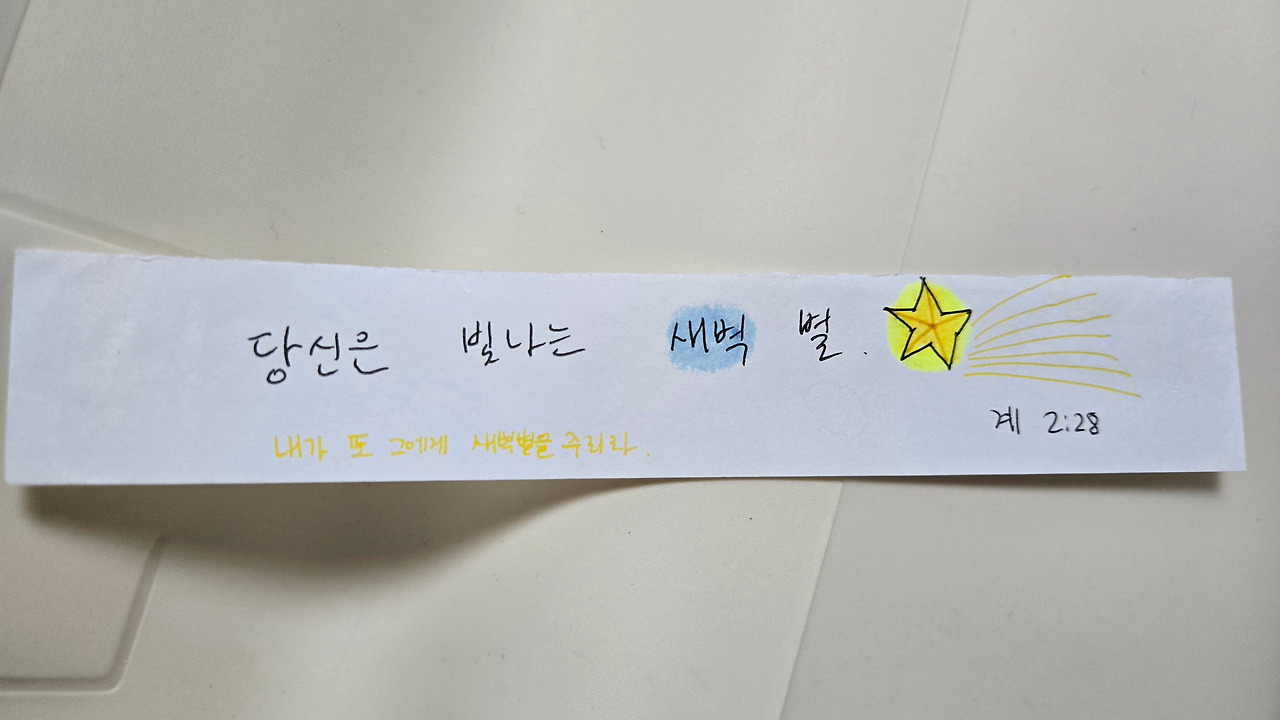 당신은 빛나는 새벽 별.
계 2:28
내가 또 그에게 새벽별을 주리라.